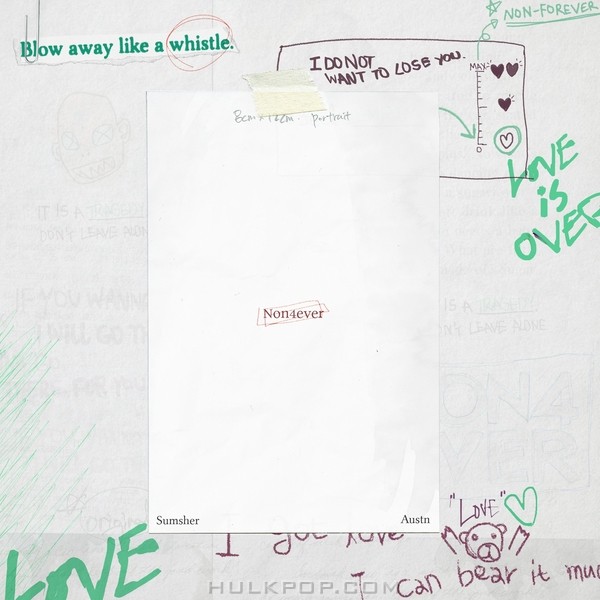 NON-FOREVER
Blow away like a whistle.
I DO NOT
WANT TO LOSE YOU.
MAX
0
portrait
LOVE
IS
OVER
IT IS A TRAGEDY
DON'T LEAVE ALONE
IF YOU WANNA
I WILL GO TH
IS A TRAGEDY
LEAVE ALONE
Non4ever
ON4
VER
Sumsher
Austn
"LOVE"
I got love
I can bear it much
LOVE
HULKPOP.COM